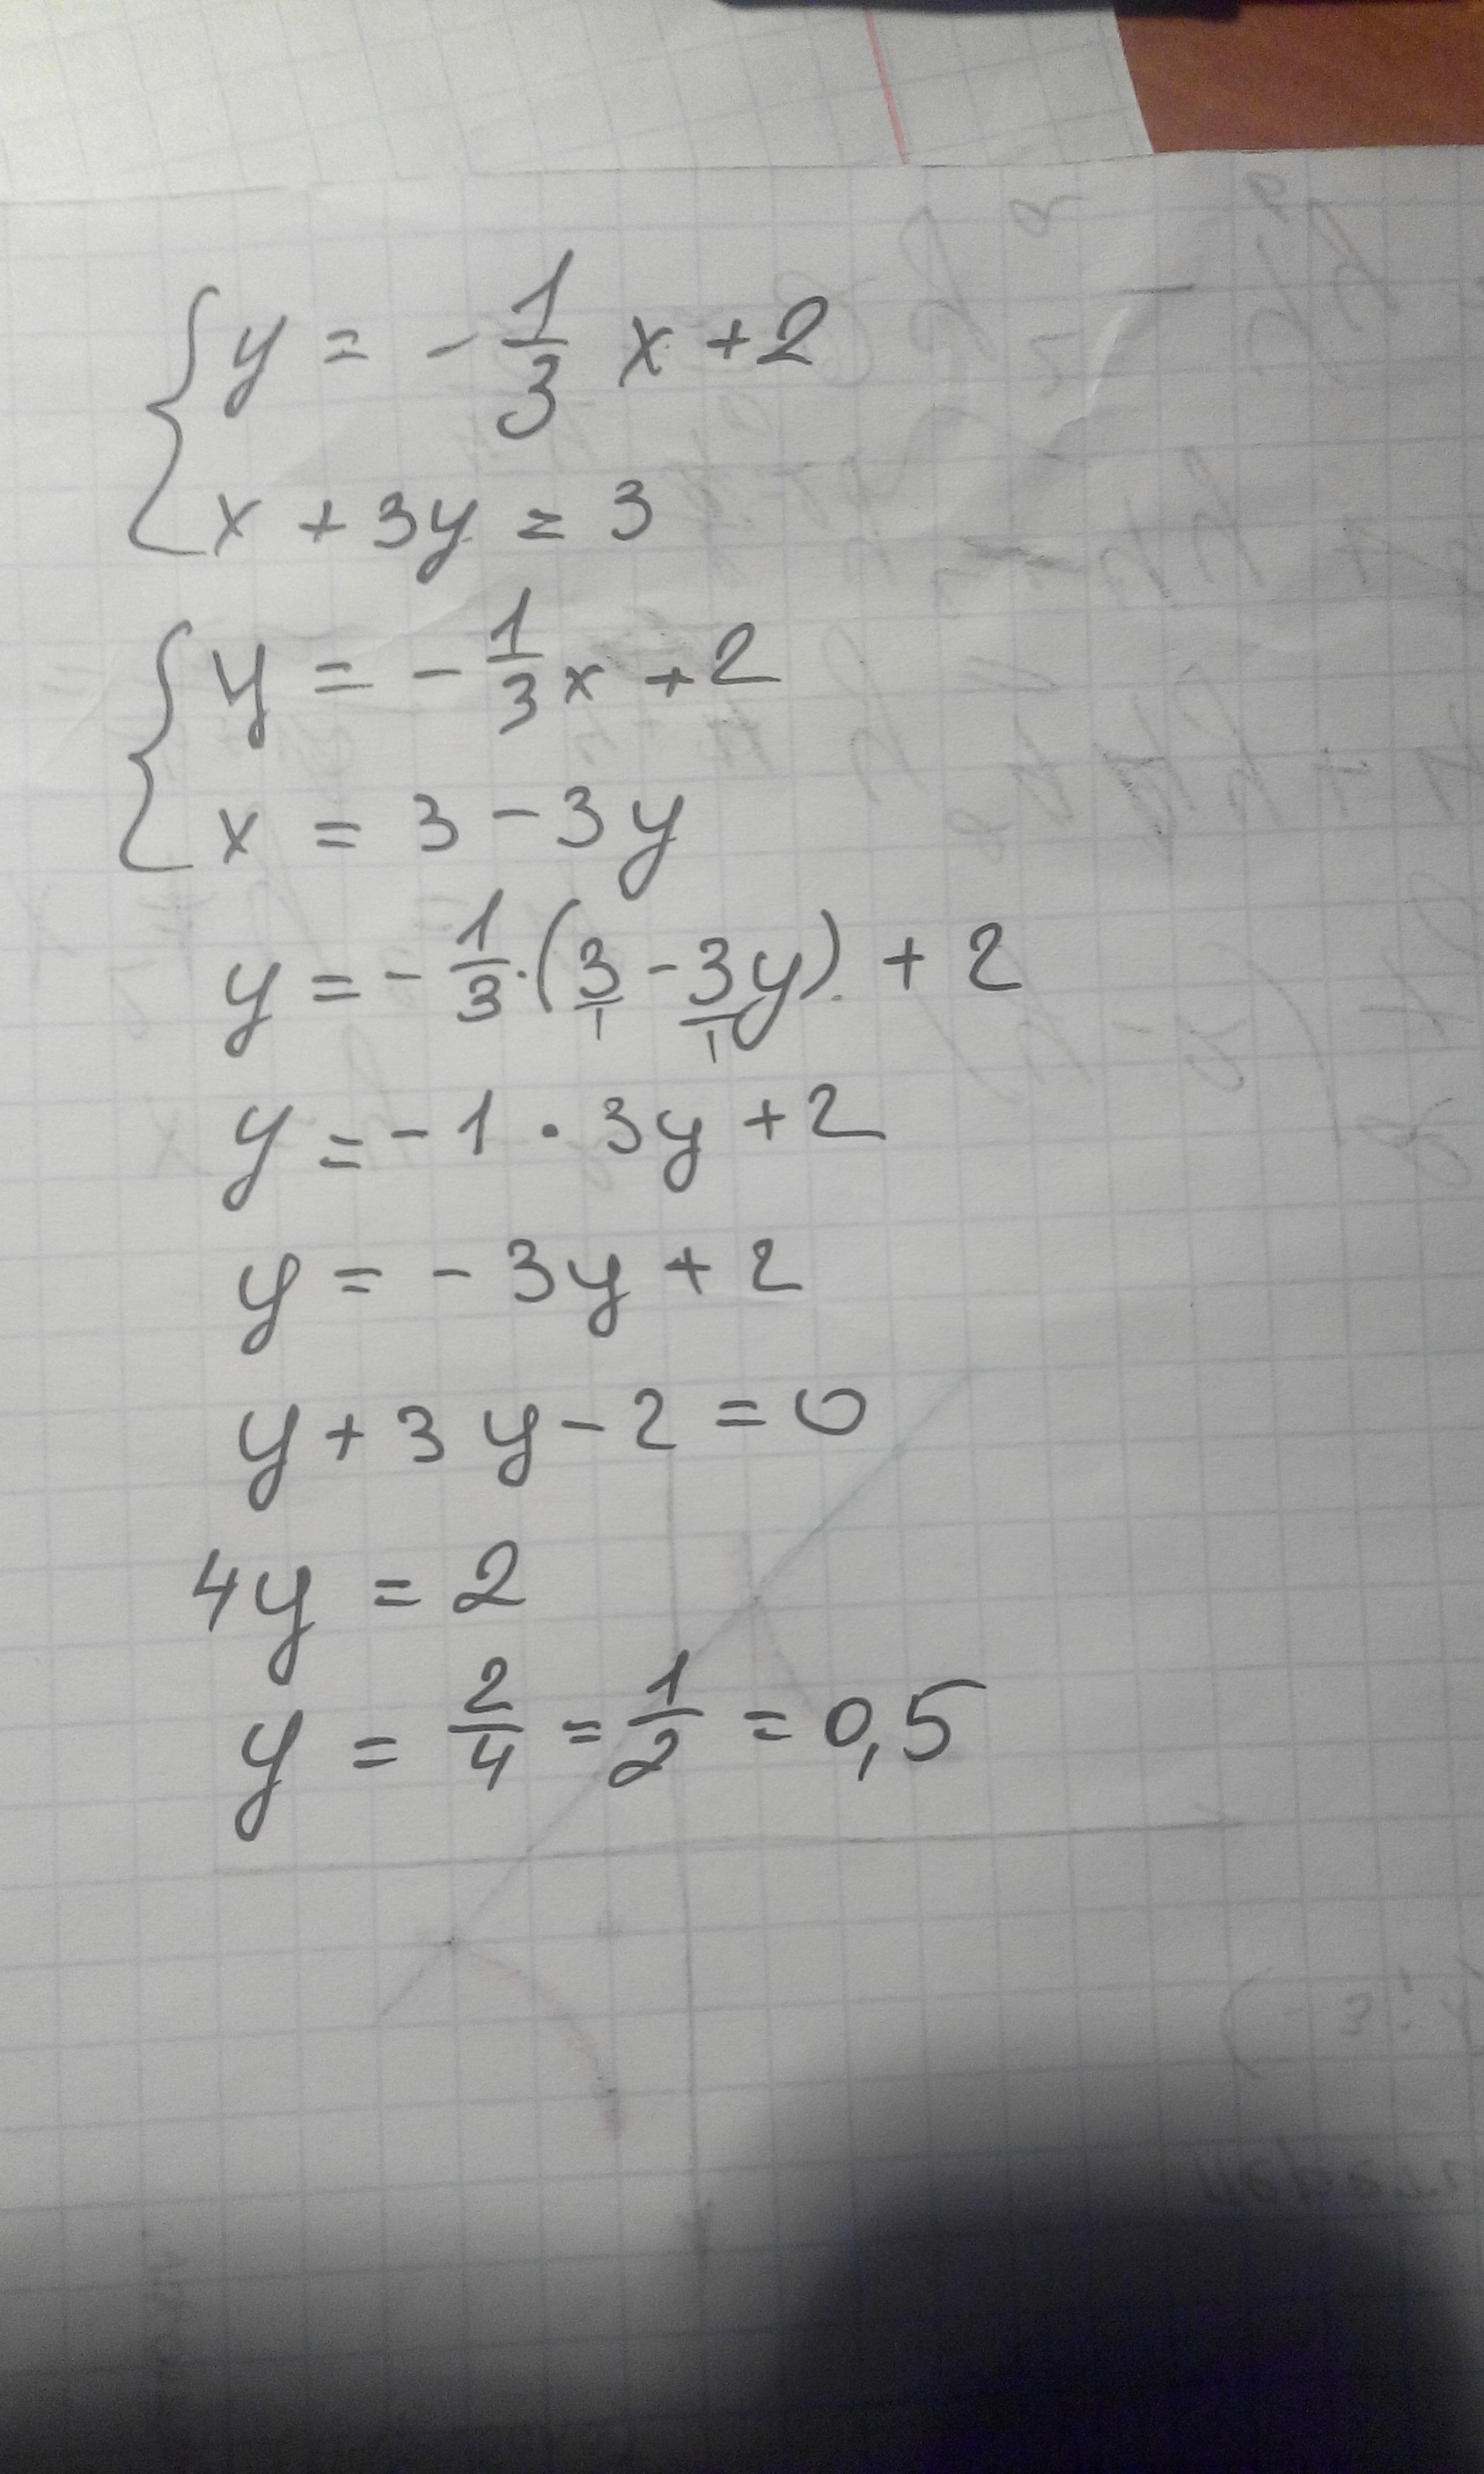 { y = - 1/3 x + 2
x + 3y = 3
{ y = - 1/3 x + 2
x = 3 - 3y
y = - 1/3 · (3/1 - 3y/1) + 2
y = - 1 · 3y + 2
y = - 3y + 2
y + 3y - 2 = 0
4y = 2
y = 2/4 = 1/2 = 0,5